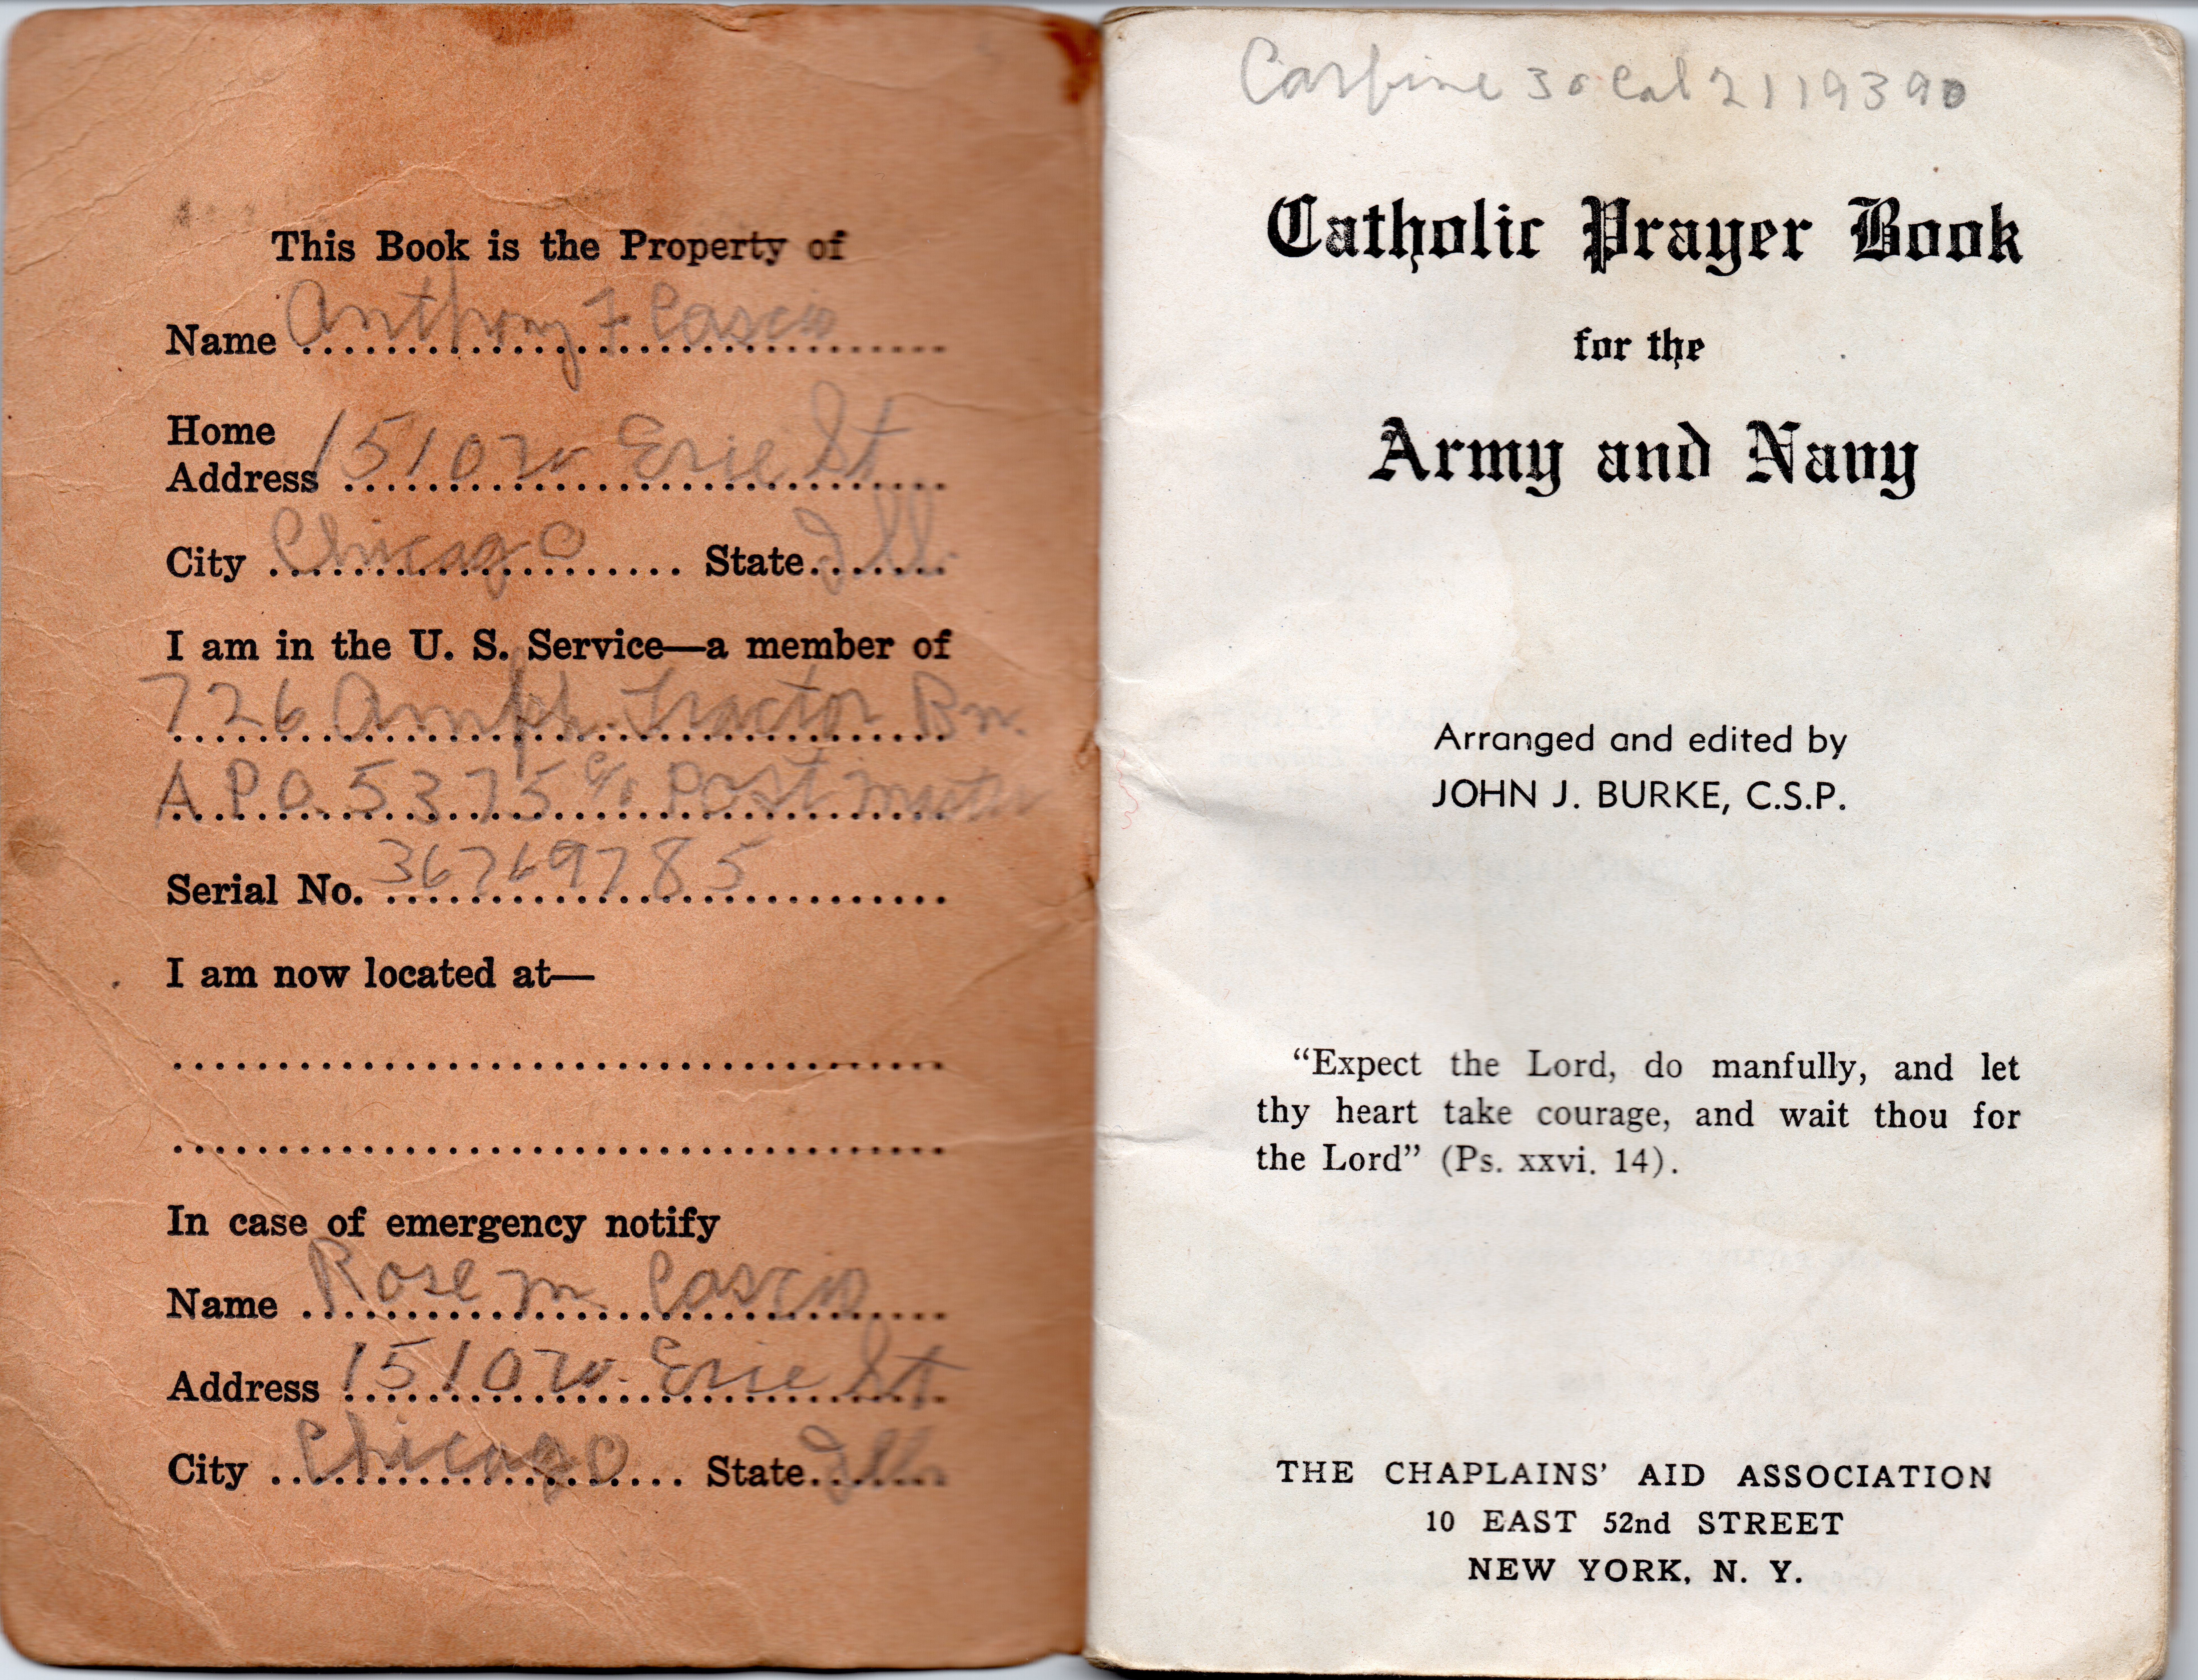 This Book is the Property of
Name Anthony F Cascio
Home
Address 1510 W Erie St
City Chicago State Ill.
I am in the U. S. Service—a member of
726 Amph. Tractor Bn.
A.P.O. 5375 c/o Post Master
Serial No. 36769785
I am now located at—
In case of emergency notify
Name Rose M. Cascio
Address 1510 W. Erie St
City Chicago State Ill.
Carbine 30 Cal 2119390
Catholic Prayer Book
for the
Army and Navy
Arranged and edited by
JOHN J. BURKE, C.S.P.
“Expect the Lord, do manfully, and let
thy heart take courage, and wait thou for
the Lord” (Ps. xxvi. 14).
THE CHAPLAINS’ AID ASSOCIATION
10 EAST 52nd STREET
NEW YORK, N. Y.